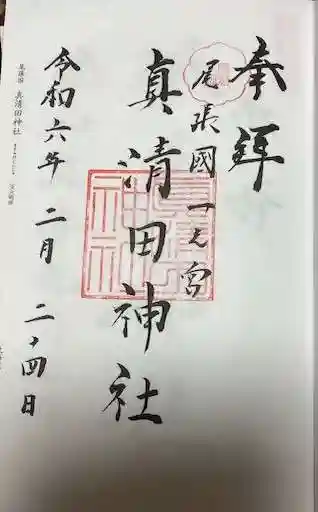 奉拝
尾張國一之宮
真清田神社
令和六年 二月 二十四日
尾張国 真清田神社